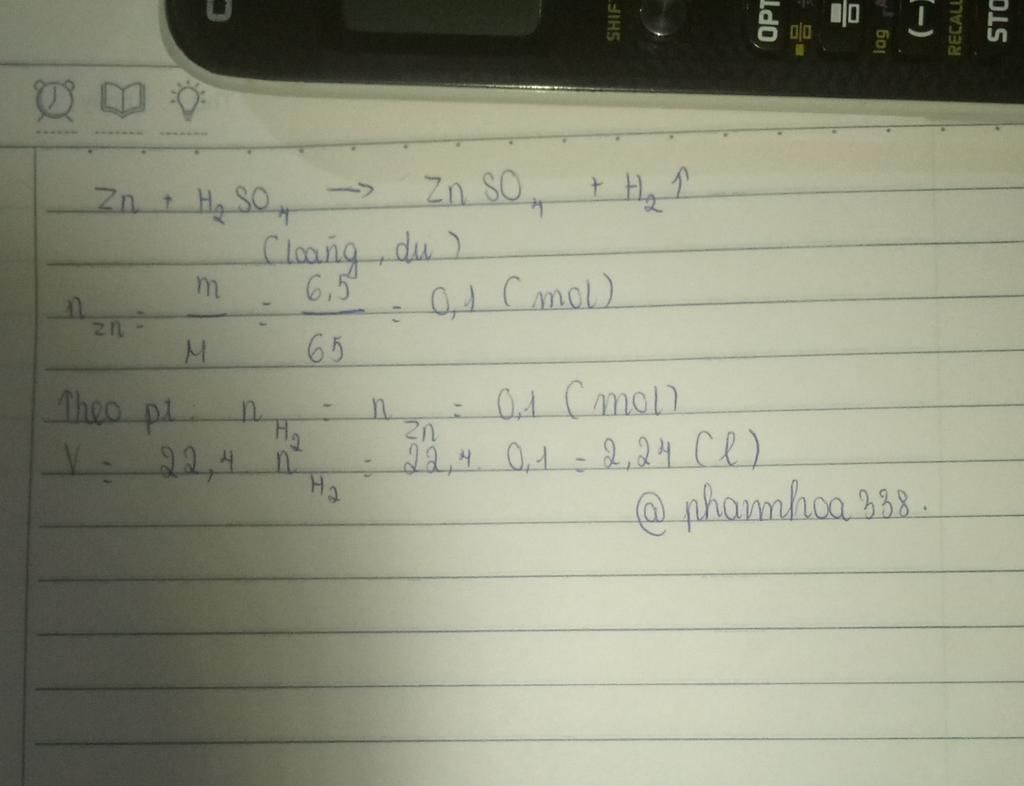 SHIFT OPT log (−) RECALL STO
Zn + H₂SO₄ → ZnSO₄ + H₂↑
(loãng, dư)
n_Zn = m/M = 6,5/65 = 0,1 (mol)
Theo pt: n_H₂ = n_Zn = 0,1 (mol)
V = 22,4 n_H₂ = 22,4 0,1 = 2,24 (l)
@phamhoa338.